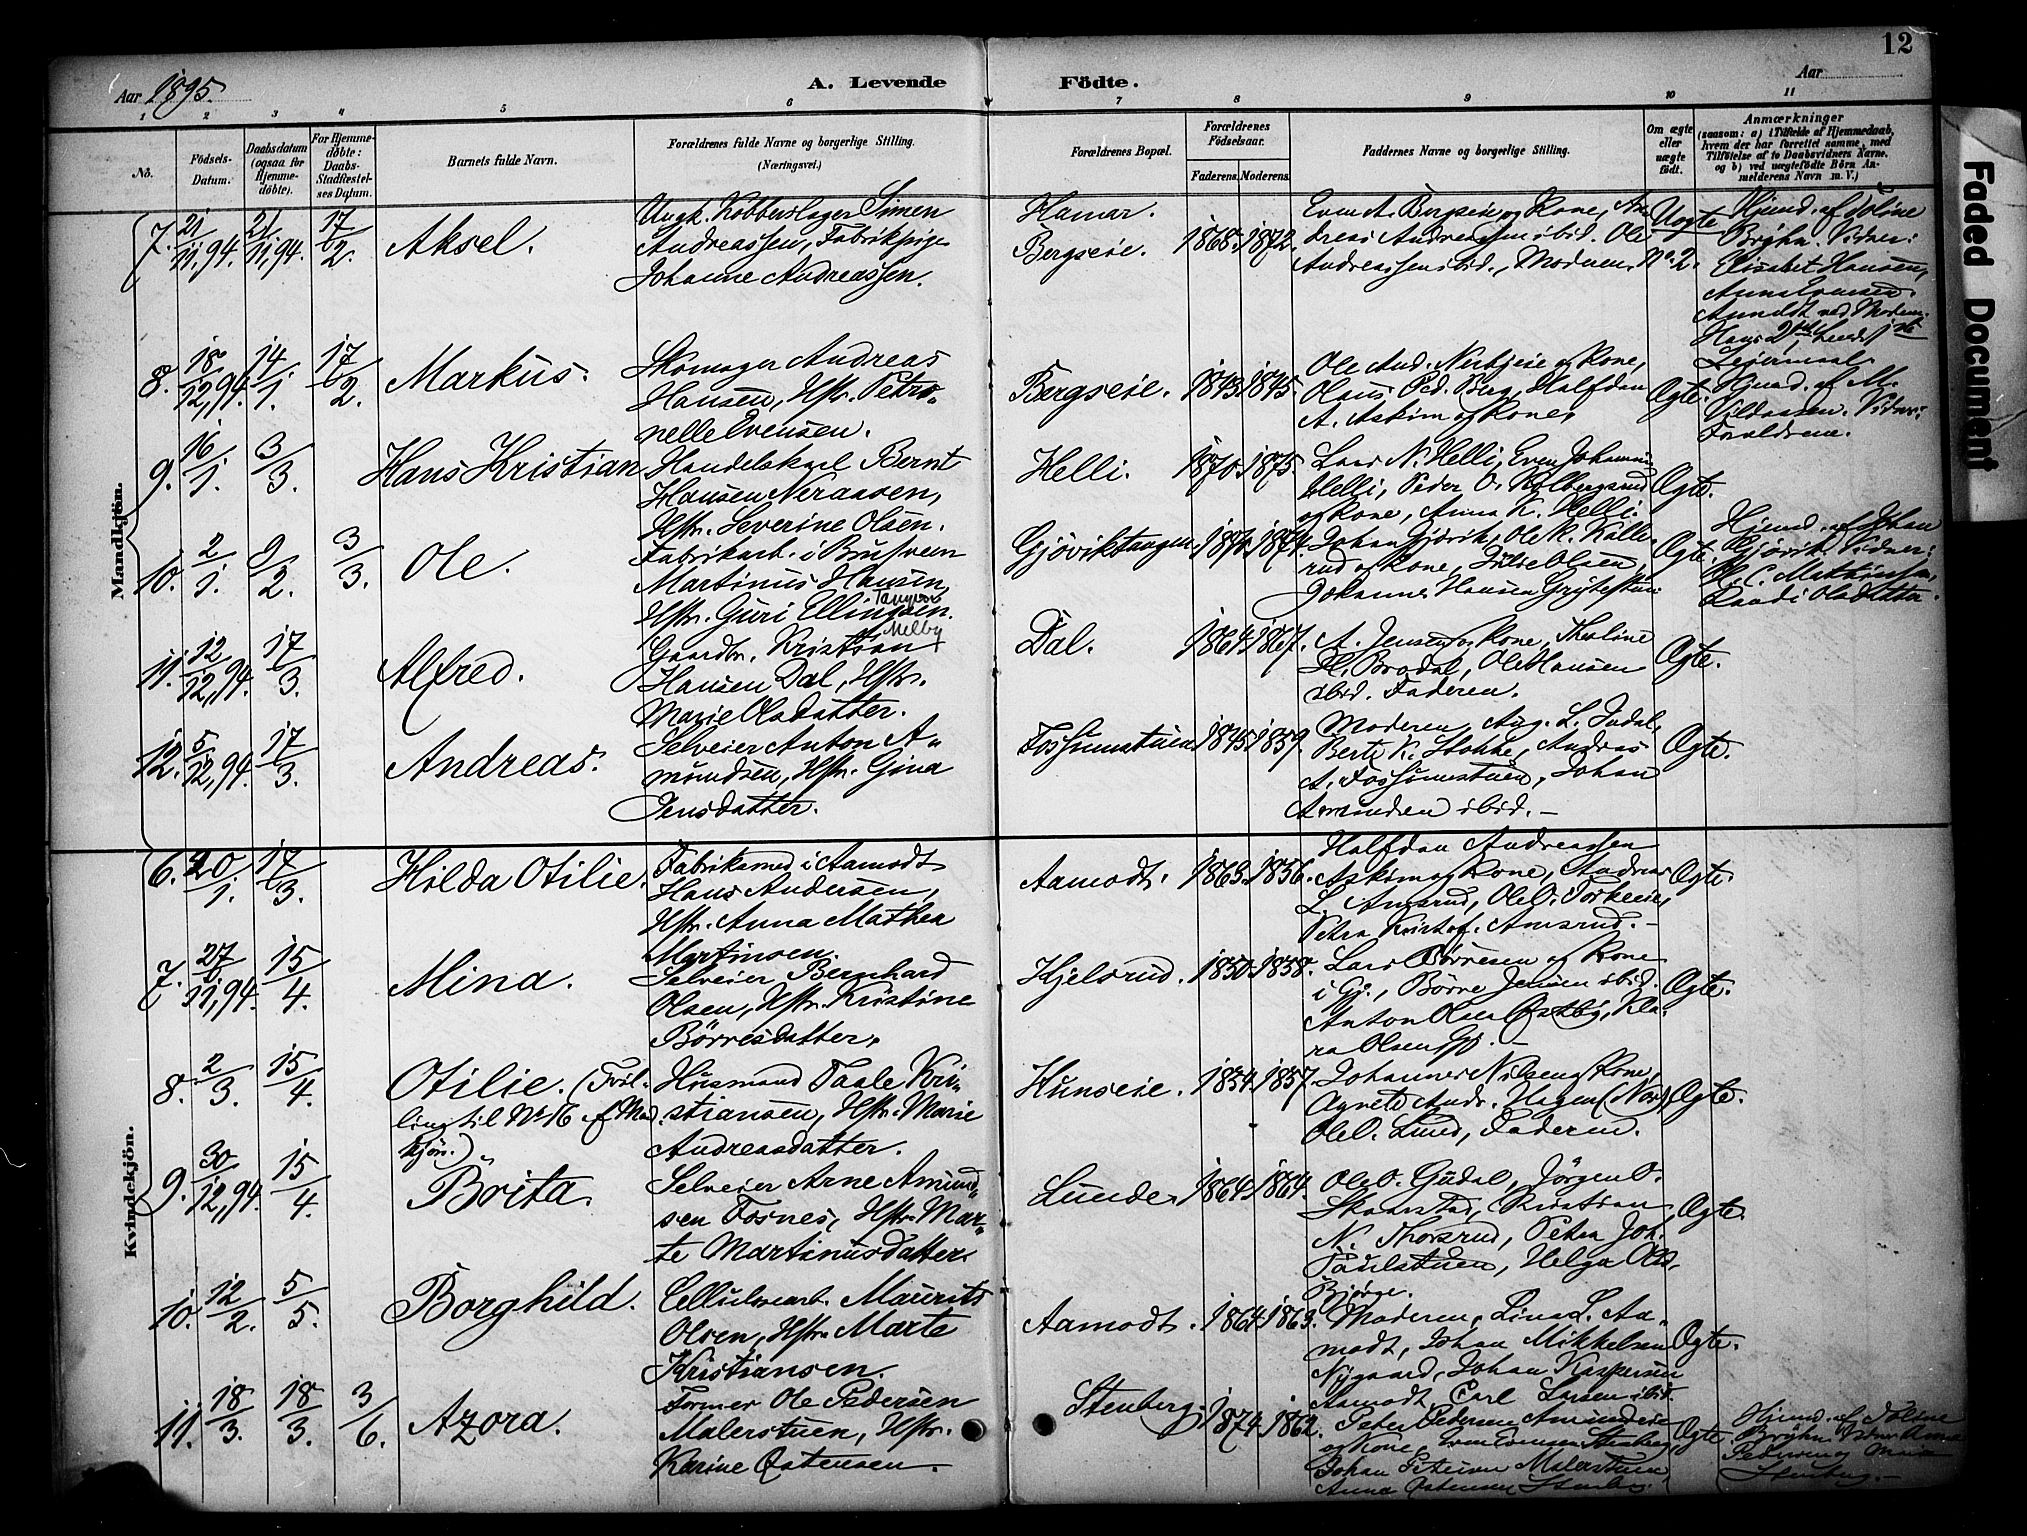 12
Aar 1895.
A. Levende Födte.
Aar
1 2 3 4 5 6 7 8 9 10 11
No.
Födsels-Datum.
Daabsdatum (ogsaa for Hjemme-döbte).
For Hjemme-döbte: Daabs-Stadfestel-ses Datum.
Barnets fulde Navn.
Forældrenes fulde Navne og borgerlige Stilling. (Næringsvei.)
Forældrenes Bopæl.
Forældrenes Födselsaar.
Faderens. Moderens.
Faddernes Navne og borgerlige Stilling.
Om ægte eller uægte födt.
Anmærkninger
(saasom: a) i Tilfælde af Hjemmedaab, hvem der har forrettet samme, med Tilföielse af to Daabsvidners Navne, og b) ved uægtefödte Börn An-melderens Navn m. V.)
Mandkjön.
7. 21/11,94. 21/11,94. 17/2. Aksel.
Ungk. Kobberslager Simen
Andreassen, Fabrikpige
Johanne Andreassen.
Hamar.
Bergseie.
1868. 1872.
Even A. Bergseie og Kone, An-
dreas Andreassen ibid. Ole
Andreassen ibid., Moderen.
Uægte
No 2.
Hjemd. af Joline
Bröhn. Vidner:
Elisabet Hansen,
Anna Evensen.
Anmeldt ved Modern.
Hans 2det, hendes 1ste
Leiermaal.
8. 18/12,94. 14/1. 17/2. Markus.
Skomager Andreas
Hansen, Hstr. Petro-
nelle Evensen.
Bergseie. 1843. 1845.
Olaus Ped. Berg, Halfdan
A. Askim og Kone.
Ægte.
Hjemd. af M.
Vidner:
Forældrene.
9. 16/1. 3/3. Hans Kristian
Handelskarl Bernt
Hansen Neraasen,
Hstr. Severine Olsen.
Helli. 1870. 1875.
Lars N. Helli, Even Johannes
Helli, Peder O. Kolbergsrud
og Kone, Anna K. Helli.
Ægte.
10. 2/1. 9/2. 3/3. Ole.
Fabrikarb. i
Martinus Hansen
Tangen
Hstr. Guri Ellingsen.
Gjöviktangen. 1874.
Johan Gjövik, Ole K. Kalle-
rud og Kone, Olsen,
Johannes Hansen
Ægte.
Hjemd. af Johan
Gjövik. Vidner:
H. C. Mathisen,
Randi Olsdatter.
11. 12/12,94. 17/3. Alfred.
Melby
Gaardbr. Kristian
Hansen Dal, Hstr.
Marie Olsdatter.
Dal. 1864. 1867.
A. Jensen og Kone, Thestine
H. Brodal, Ole Hansen
ibid. Faderen.
Ægte.
12. 5/12,94. 17/3. Andreas.
Selveier Anton A-
mundsen, Hstr. Gina
Jensdatter.
Fossumstuen 1845. 1859.
Moderen, Aug. L.
Berte K. Stokke, Andreas
A. Fossumstuen, Johan
Amundsen ibid. –
Ægte.
Kvindekjön.
6. 20/1. 17/3. Hilda Otilie.
Fabriksmed i Aamodt
Hans Andersen,
Hstr. Anna Mathea
Martinsen.
Aamodt. 1863. 1856.
Halfdan Andreassen
Askim og Kone, Andreas
L. Amsrud, Ole O.
Petra Kristof. Amsrud. –
Ægte.
7. 27/11,94. 15/4. Mina.
Selveier Bernhard
Olsen, Hstr. Kristine
Börresdatter.
Hjelsrud. 1850. 1858.
Lars Börresen og Kone
i Gj., Börre Jensen ibid.
Anton Olsen Østby, Kla-
ra Olsen Gj. –
Ægte.
8. 2/3. 15/4. Otilie. (Tvil-
ling til No 16 af Mand-
kjön.)
Husmand Taale Kri-
stiansen, Hstr. Marie
Andreasdatter.
Hunseie. 1854. 1857.
Johannes Nilsen og Kone,
Agnete Andr. Hagen (Nor),
Ole O. Lund, Faderen.
Ægte.
9. 30/12,94. 15/4. Brita.
Selveier Arne Amund-
sen Fosnes, Hstr. Mar-
te Martinusdatter.
Lunde. 1864. 1864.
Ole O. Gudal, Jörgen O.
Skaarstad, Kristian
N. Thorsrud, Petra Joh.
Paulstuen, Helga Ols.
Bjørge.
Ægte.
10. 12/2. 5/5. Borghild.
Cellulosearb. Maurits
Olsen, Hstr. Marte
Kristiansen.
Aamodt. 1864. 1863.
Moderen, Lina L. Aa-
modt, Johan Mikkelsen
Nygaard, Johan Kaspersen
Aamodt, Carl Larsen ibid.
Ægte.
11. 18/3. 18/3. 3/6. Azora.
Former Ole Pedersen
Malerstuen, Hstr.
Karine Østensen.
Stenberg. 1874. 1862.
Peter Pedersen
og Kone, Even Evensen Stenberg,
Johan Petersen Malerstuen,
Anna Østensen Stenberg.
Ægte.
Hjemd. af Joline
Bröhn. Vidner Anne
Pedersen og
Stenberg. –
Faded Document